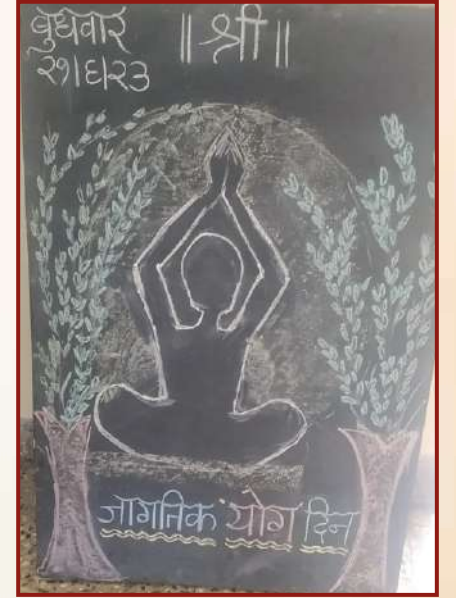 बुधवार
२१।६।२३
॥ श्री ॥
जागतिक योग दिन